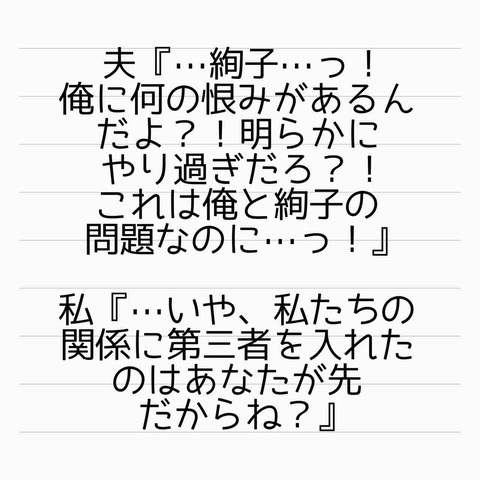 夫『…絢子…っ!
俺に何の恨みがあるん
だよ?!明らかに
やり過ぎだろ?!
これは俺と絢子の
問題なのに…っ!』
私『…いや、私たちの
関係に第三者を入れた
のはあなたが先
だからね?』